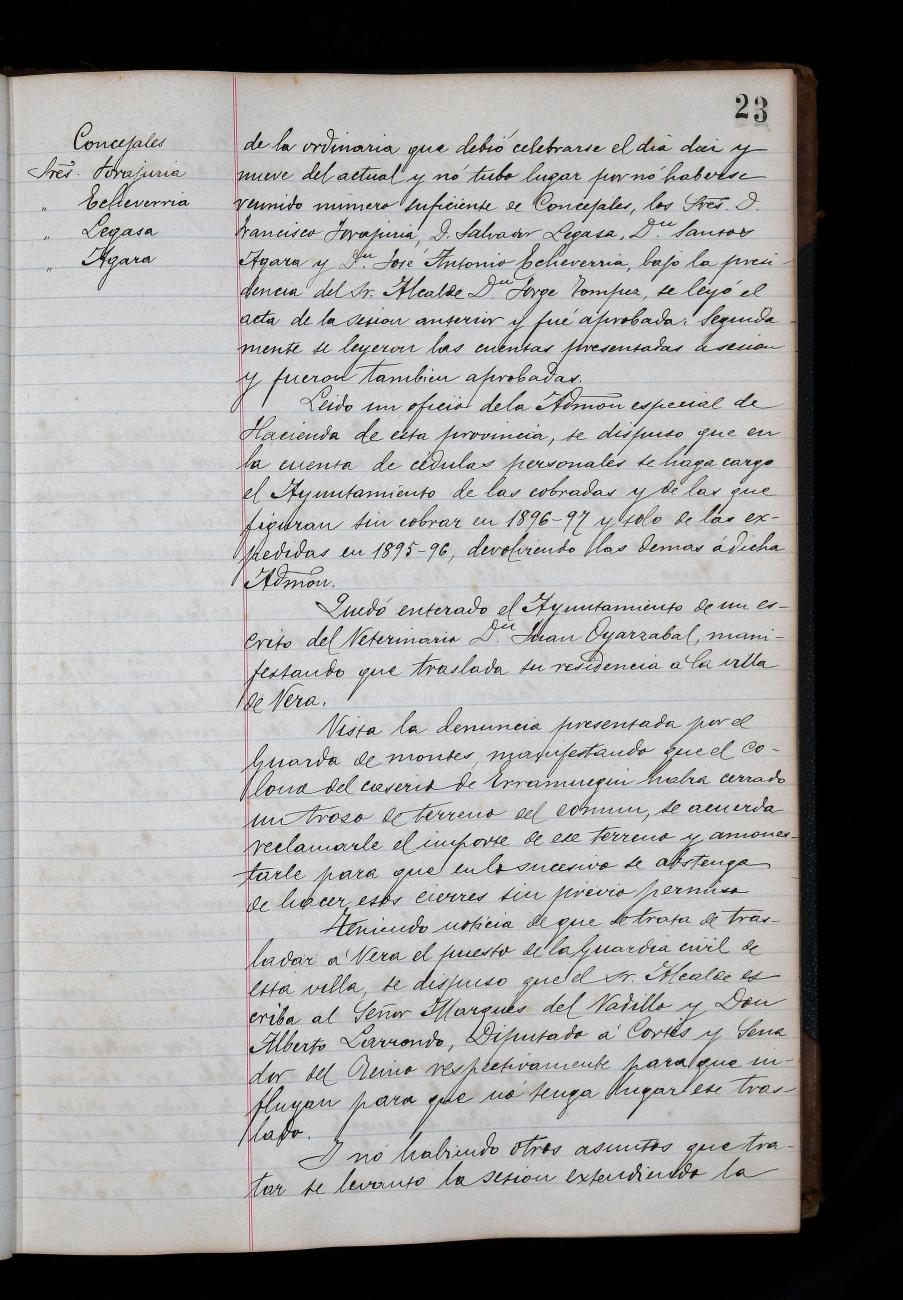 23
Concejales
Sres. Torajuria
" Echeverria
" Legasa
" Agara
de la ordinaria que debió celebrarse el dia diez y
nueve del actual y nó tubo lugar por nó haberse
reunido numero suficiente de Concejales, los Sres. D.
Francisco Torajuria, D. Salvador Legasa, Dn Santos
Agara y Dn José Antonio Echeverria, bajo la presi-
dencia del Sr. Alcalde Dn Jorge Tompes, se leyó el
acta de la sesion anterior y fué aprobada. Segunda-
mente se leyeron las cuentas presentadas a sesion
y fueron tambien aprobadas.
Leido un oficio de la Admon especial de
Hacienda de esta provincia, se dispuso que en
la cuenta de cédulas personales se haga cargo
el Ayuntamiento de las cobradas y de las que
figuran sin cobrar en 1896-97 y solo de las ex-
pedidas en 1895-96, devolviendo las demas á dicha
Admon.
Quedó enterado el Ayuntamiento de un es-
crito del Veterinario Dn Juan Oyarzabal, mani-
festando que traslada su residencia á la villa
de Vera.
Vista la denuncia presentada por el
Guarda de montes, manifestando que el co-
lono del caserio de Erramuegui habia cerrado
un troso de terreno del comun, se acuerda
reclamarle el importe de ese terreno y amones-
tarle para que en lo sucesivo se abstenga
de hacer esos cierres sin previo permiso
Teniendo noticia de que se trata de tras-
ladar á Vera el puesto de la Guardia civil de
esta villa, se dispuso que el Sr. Alcalde es
criba al Señor Marques del Vadillo y Don
Alberto Larrondo, Diputado á Cortes y Sena
dor del Reino respectivamente para que in-
fluyan para que nó tenga lugar ese tras-
lado.
Y nó habiendo otros asuntos que tra-
tar se levanto la sesion extendiendo la